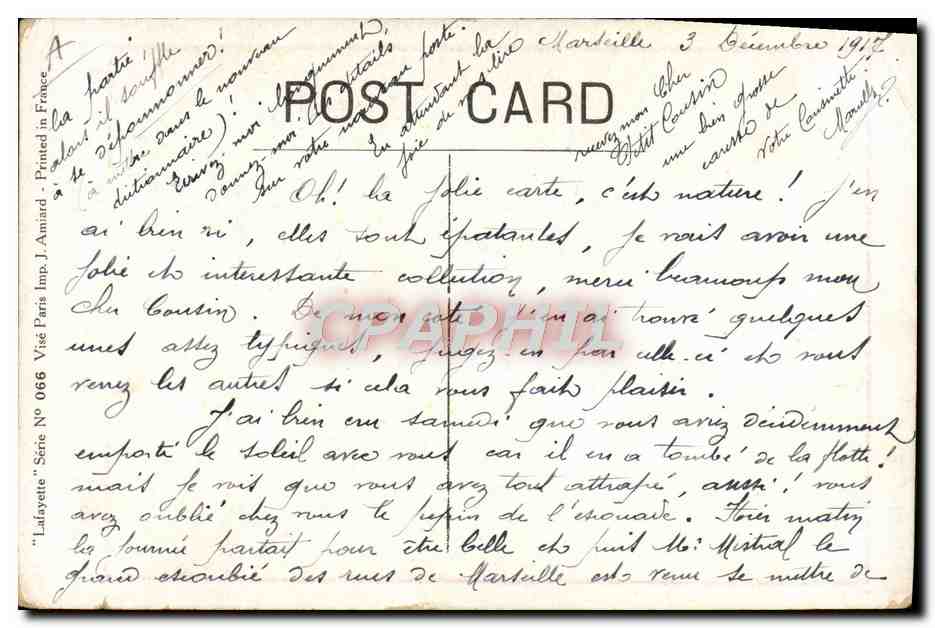 Marseille 3 Décembre 1917
POST CARD
Oh! la jolie carte, c'est nature! J'en
ai bien ri, elles sont épatantes, Je vais avoir une
jolie et interessante collection, merci beaucoup mon
cher Cousin. De mon coté j'en ai trouvé quelques
unes assez typiques, jugez-en par celle-ci et vous
verrez les autres si cela vous fait plaisir.
J'ai bien cru samedi que vous aviez décidemment
emporté le soleil avec vous car il en a tombé de la flotte!
mais je vois que vous avez tout attrapé, aussi! vous
avez oublié chez vous le pepin de l'escouade. Hier matin
la journée partait pour être belle et puis Mr Mistral le
grand escoubié des rues de Marseille est venu se mettre de
A
la partie
alors il souffle
à se déportionner!
(à mettre dans le nouveau
dictionnaire)!
Ecrivez moi longuement,
Donnez-moi des détails
sur votre nouveau poste.
En attendant la
joie de vous lire
recevez mon Cher
Petit Cousin
une bien grosse
caresse de
Votre Cousinette
"Lafayette" Série No 066 Visé Paris Imp. J. Amiard - Printed in France
CPAPHIL